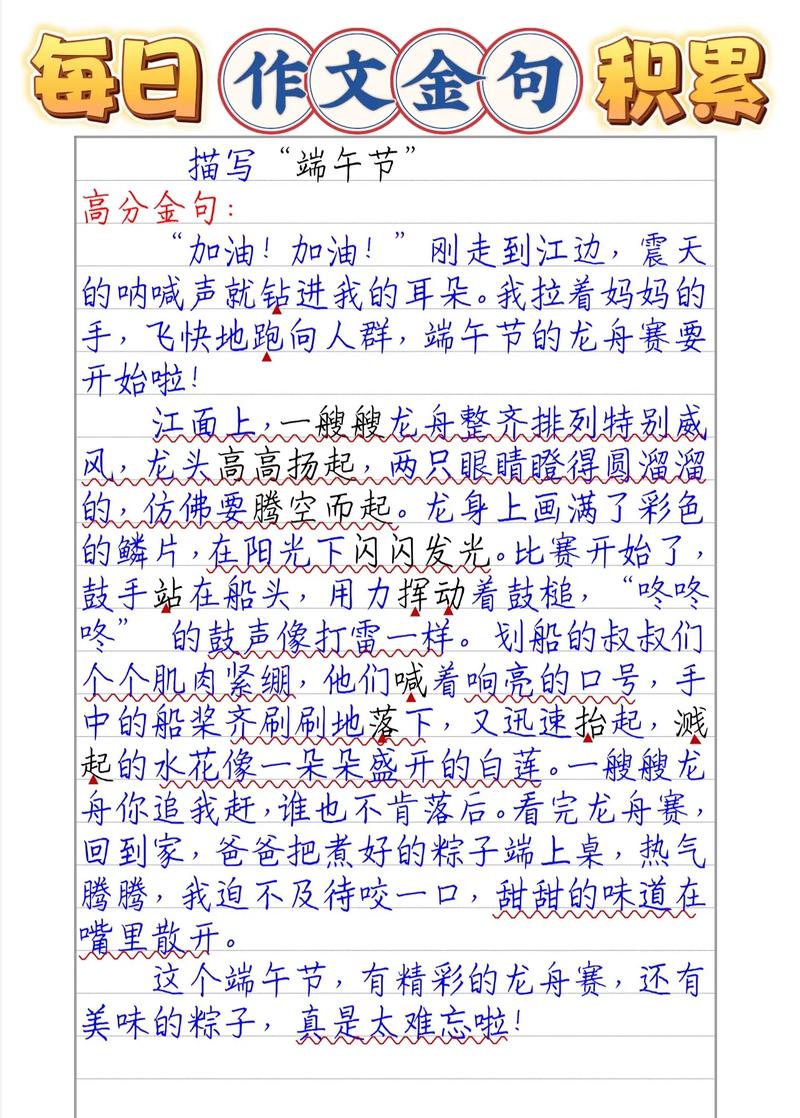 每日作文金句积累
描写“端午节”
高分金句：
“加油！加油！”刚走到江边，震天
的呐喊声就钻进我的耳朵。我拉着妈妈的
手，飞快地跑向人群，端午节的龙舟赛要
开始啦！
江面上，一艘艘龙舟整齐排列特别威
风，龙头高高扬起，两只眼睛瞪得圆溜溜
的，仿佛要腾空而起。龙身上画满了彩色
的鳞片，在阳光下闪闪发光。比赛开始了，
鼓手站在船头，用力挥动着鼓槌，“咚咚
咚”的鼓声像打雷一样。划船的叔叔们
个个肌肉紧绷，他们喊着响亮的口号，手
中的船桨齐刷刷地落下，又迅速抬起，溅
起的水花像一朵朵盛开的白莲。一艘艘龙
舟你追我赶，谁也不肯落后。看完龙舟赛，
回到家，爸爸把煮好的粽子端上桌，热气
腾腾，我迫不及待咬一口，甜甜的味道在
嘴里散开。
这个端午节，有精彩的龙舟赛，还有
美味的粽子，真是太难忘啦！